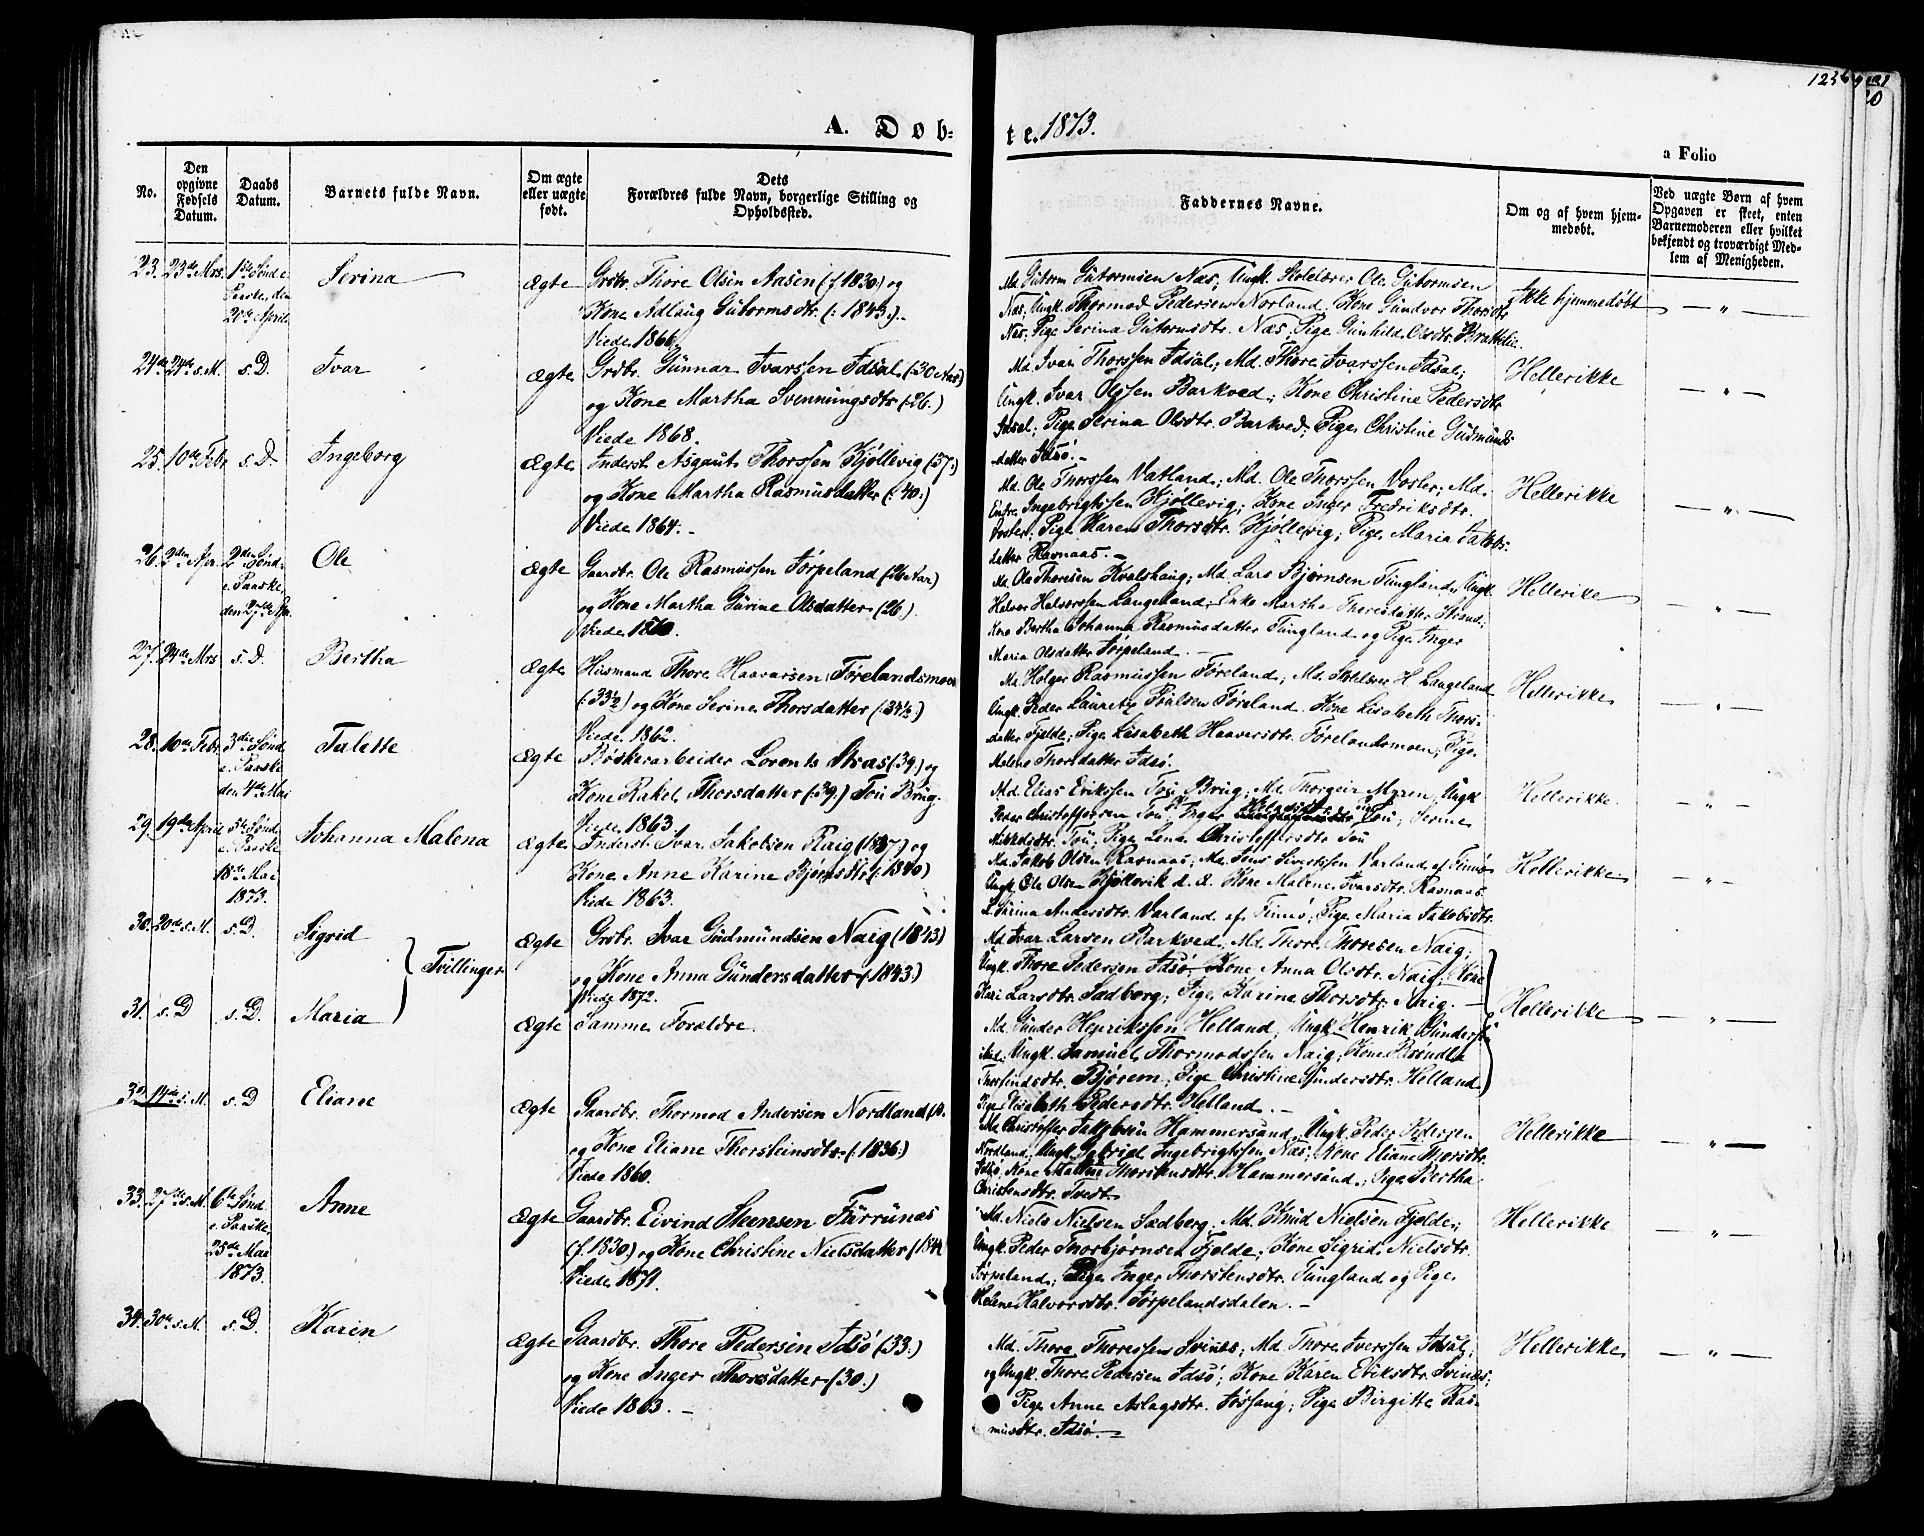 A. Døb-
te. 1873.
a Folio
No.
Den opgivne Fødsels Datum.
Daabs Datum.
Barnets fulde Navn.
Om ægte eller uægte født.
Dets
Forældres fulde Navn, borgerlige Stilling og
Opholdssted.
Faddernes Navne.
Om og af hvem hjem-
medøbt.
Ved uægte Børn af hvem
Opgaven er skeet, enten
Barnemoderen eller hvilket
bekjendt og troværdigt Med-
lem af Menigheden.
23. 23de Mrs. 1ste Sønd. e. Paaske, den 20de April. Serina Ægte Grdbr. Thore Olsen Aasen (f. 1830) og
Kone Adlaug Gutormsdtr. (: 1843:).
Viede 1866.
Md. Gutorm Gutormsen Næs; Ungk. Skolelærer Ole Gutormsen
Næs; Ungk. Thormod Pedersen Norland; Kone Gundvor Thorsdtr.
Næs; Pige Serina Gutormsdtr. Næs; Pige Gunhild Olsdtr. Brattelie.
Ikke hjemmedøbt — " —
24de 24de s. M. s. D. Ivar Ægte Grdbr. Gunnar Ivarssen Idsal (:30 Aar)
og Kone Martha Svenningsdtr. (:26.)
Viede 1868.
Md. Ivar Thorssen Idsal; Md. Thore Ivarssen Idsal;
Ungk. Ivar Olssen Barkved; Kone Christine Pedersdtr.
Idsal; Pige Serina Olsdtr. Barkved; Pige Christine Gudmunds-
datter Idsø.
Hellerikke — " —
25. 10de Febr. s. D. Ingeborg Ægte Inderst Asgaut Thorssen Kjøllevig (37.)
og Kone Martha Rasmusdatter (: 40:)
Viede 1864.
Md. Ole Thorssen Vatland; Md. Ole Thorssen Voster; Md.
Enfr. Ingebrigtssen Kjøllevig; Kone Inger Fredriksdtr.
Voster; Pige Karen Thorsdtr. Kjøllevig; Pige Maria Jakobs-
datter Ravnaas.
Hellerikke — " —
26. 2den Apr. 2den Sønd. e. Paaske, den 27de Apr. Ole Ægte Gaardbr. Ole Rasmussen Tørpeland (26 Aar)
og Kone Martha Gurine Olsdatter (26).
Viede 1860.
Md. Ole Thoresen Kvalshaug; Md. Lars Bjørnsen Tungland; Ungk.
Halvor Halvorssen Langeland; Enke Martha Thoresdatter Strand;
Kone Bertha Johanna Rasmusdatter Tungland og Pige Inger
Maria Olsdatter Tørpeland.
Hellerike — " —
27. 24de Mrs. s. D. Bertha Ægte Husmand Thore Haavarsen Førelandsmoen
(:33½) og Kone Serine Thorsdatter (:34½:)
Viede 1862.
Md. Holger Rasmussen Føreland; Md. Skolelær. H. Langeland
Ungk. Peder Lauretz Poulsen Føreland. Kone Lisabeth Thors-
datter Fjelde; Pige Lisabeth Haaversdtr. Førelandsmoen; Pige
Malene Thorsdatter Idsø.
Hellerikke — " —
28. 10de Febr. 3die Sønd. e. Paaske den 4de Mai Talette Ægte Bøskerarbeider Lorents Aas (39.) og
Kone Rakel Thorsdatter (:39.) Tou Brug.
Viede 1863
Md. Elias Erikssen Tou Brug; Md. Thorgeir Myren; Ungk.
Peder Christoffersen Tou; K. Inger Tou; Pige Serine
Mikkelsdtr. Tou; Pige Lena Christoffersdtr. Tou
Hellerikke — " —
29. 19de April 5te Sønd. e. Paaske 18de Mai 1873. Johanna Malena Ægte Inderst. Ivar Jakobsen Raig (1837) og
Kone Anne Karine Bjørnsdtr. (: 1840)
Viede 1863.
Md. Jakob Olsen Ravnaas; Md. Jens Sivertsen Varland af Finnø
Ungk. Ole Olsen Kjøllevik d. æ. Kone Malene Ivarsdtr. Ravnaas
L. Gurina Andersdtr. Varland af Finnø; Pige Maria Jakobsdtr.
Hellerikke — " —
30. 20de s. M. s. D. Sigrid Ægte Grdbr. Ivar Gudmundsen Naig (1843)
og Kone Anna Gundersdatter (1843.)
Viede 1872.
Tvillinger
Md. Ivar Larsen Barkved; Md. Thore Thoresen Naig;
Ungk. Thore Pedersen Idsø. Kone Anna Olsdtr. Naig; Kone
Kari Larsdtr. Sædberg; Pige Karine Thorsdtr. Naig. —
31. s. D s. D. Maria Ægte Samme Forældre.
Md. Gunder Henrikssen Helland; Ungk. Henrik Gunders-
Ungk. Samuel Thormodssen Naig; Kone Brøndla
Thorfindsdtr. Bjørem; Pige Christine Gundersdtr. Helland
Pige Elisabeth Pedersdtr. Helland. —
Hellerikke — " —
32. 14de s. M. s. D Eliane Ægte Gaardbr. Thormod Andersen Nordland
og Kone Eliane Thorsteinsdtr. (: 1836:)
Viede 1860.
Md. Christoffer Jakobsen Hammersand; Ungk. Peder Pedersen
Nordland; Ungk. Gabriel Ingebrigtssen Næs; Kone Eliane Thorsdtr.
Idsø; Kone Malene Thorkensdtr. Hammersand; Pige Bertha
Christensdtr. Tvedt.
Hellerikke — " —
33. 27de s. M. 6te Sønd. e. Paaske, 25de Mai 1873. Anne Ægte Gaardbr. Eivind Steensen Furrunæs
(f. 1830) og Kone Christine Nielsdatter (1844
Viede 1871.
Md. Niels Nielsen Sædberg; Md. Knud Nielsen Fjelde;
Ungk. Peder Thorbjørnsen Fjelde; Kone Sigrid Nielsdtr.
Tørpeland; Pige Inger Thorstensdtr. Tungland og Pige
Helene Halvorsdtr. Tørpelandsdalen. —
Hellerikke — " —
34. 30te s. M. s. D. Karin Ægte Gaardbr. Thore Pedersen Idsø (33.)
og Kone Inger Thorsdatter (30.)
Viede 1863. —
Md. Thore Thoressen Svines; Md. Thore Iverssen Idsal;
og Ungk. Thore Pedersen Idsø; Kone Karen Eriksdtr. Svines;
Pige Anna Aslagsdtr. Jøssang; Pige Birgitte Ras-
musdtr. Idsø. —
Hellerikke — " —